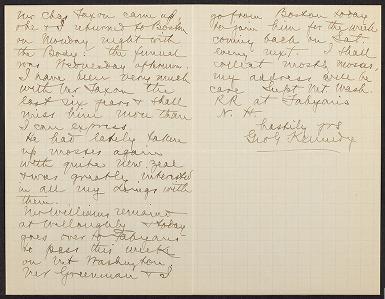 Mr Chas Faxon came up,
& he & I returned to Boston
on Monday night with
the Body, the funeral
was Wednesday afternoon.
I have been very much
with Mr Faxon the
last six years & shall
miss him more than
I can express
He had lately taken
up mosses again
with quite new zeal
& was greatly interested
in all my doings with
them.
Mr Williams remained
at Willoughby & today
goes over to Fabyans
to pass this week
on Mt Washington
Mr Greenman & I
go from Boston today
to join him for the week
coming back on Sat.
even'g next. I shall
collect mostly mosses.
My address will be
care Supt Mt. Wash.
RR at Fabyans
N. H.
hastily yrs
Geo G Kennedy